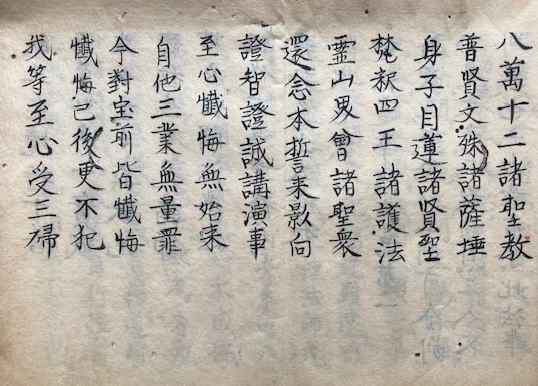 八萬十二諸聖教
普賢文殊諸薩埵
身子目蓮諸賢聖
梵釈四王諸護法
霊山界會諸聖衆
還念本誓来影向
證智證誠講演事
至心懺悔無始来
自他三業無量罪
今對宝前皆懺悔
懺悔已後更不犯
我等至心受三帰